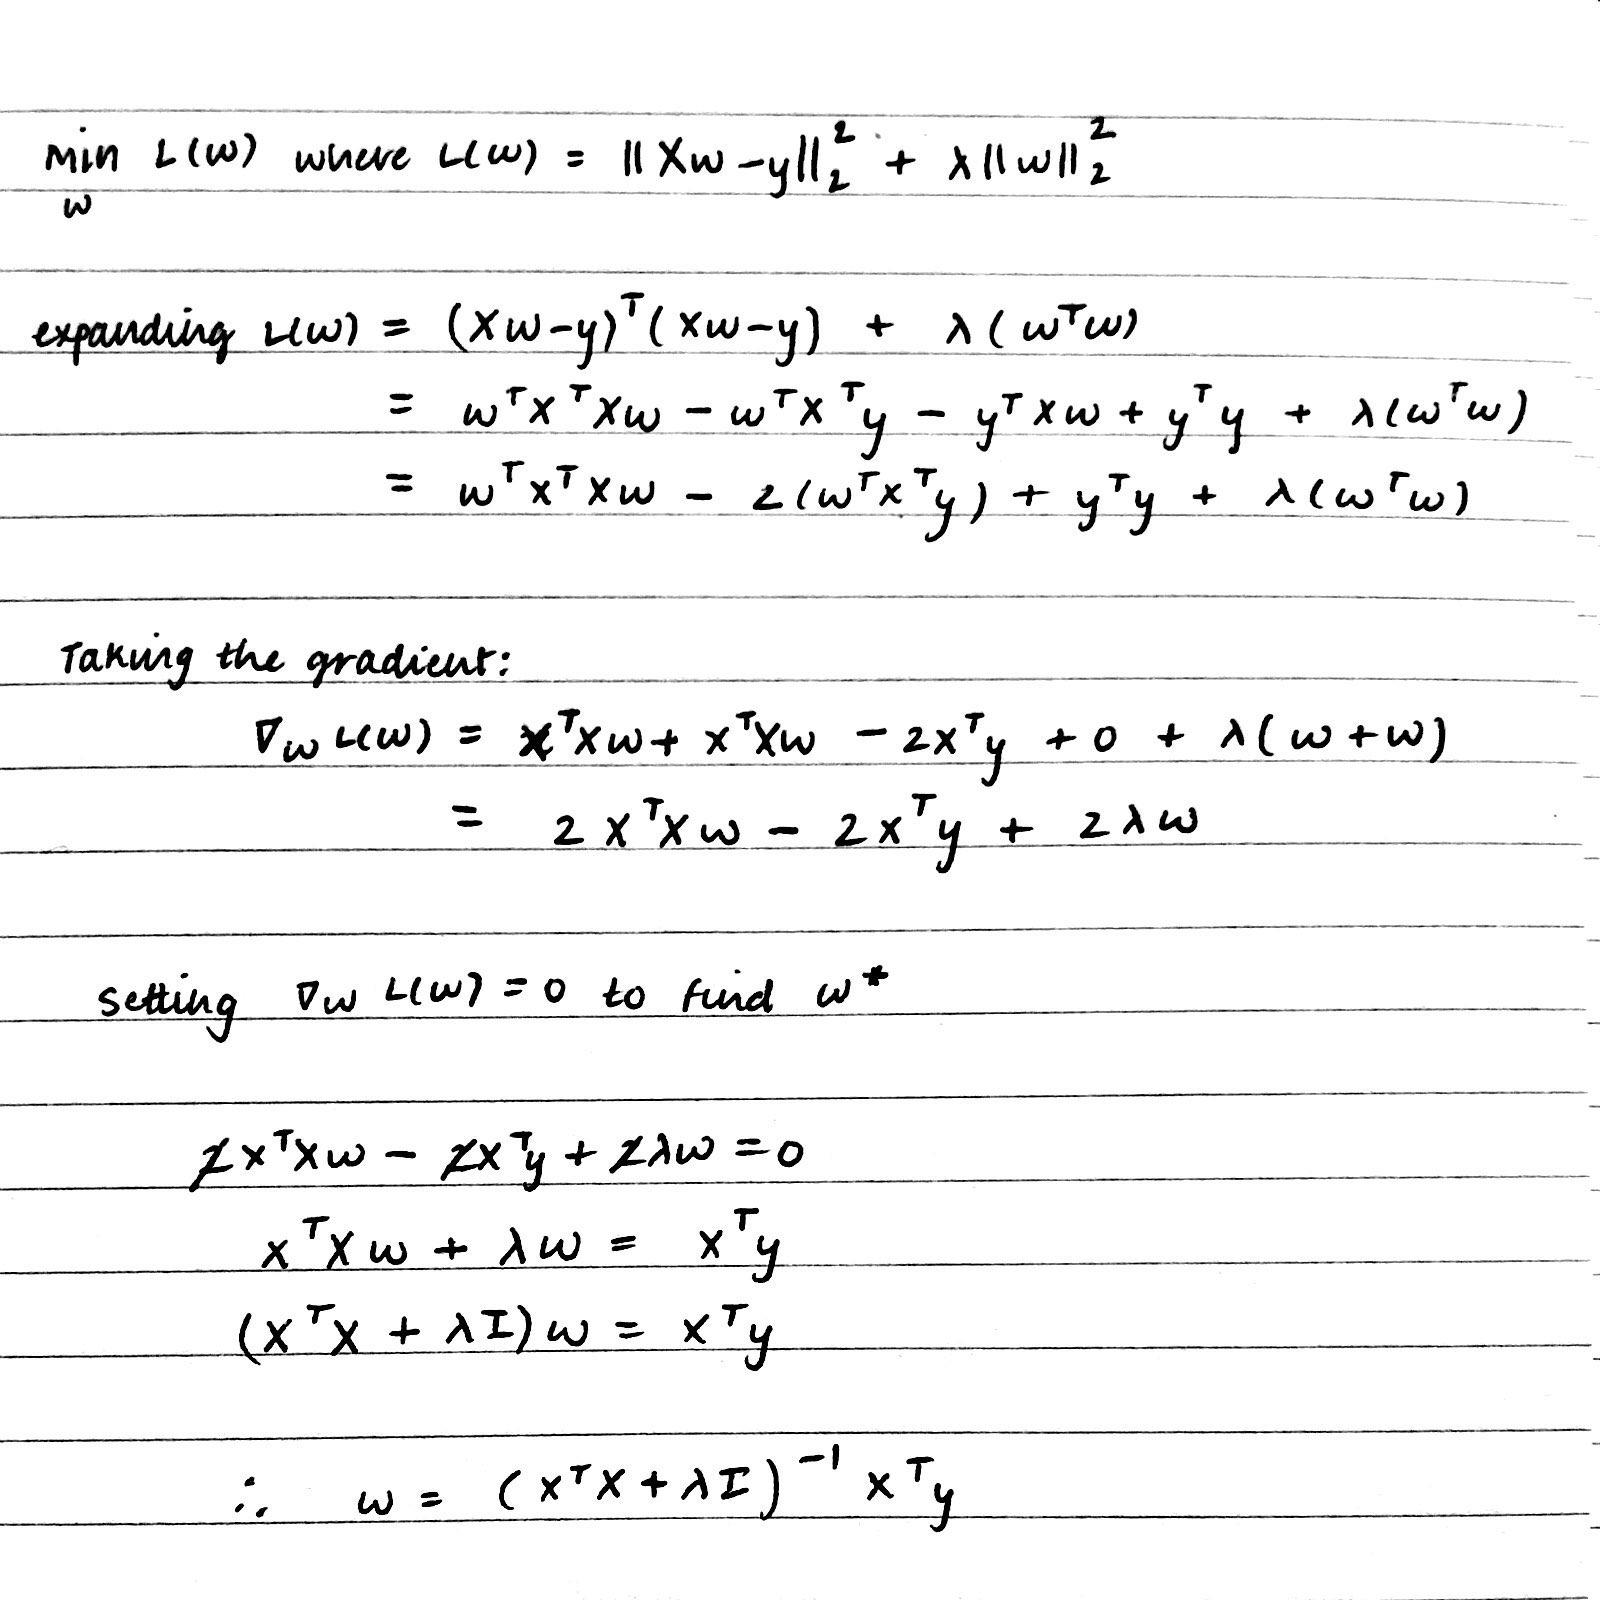 min L(w) where L(w) = ||Xw - y||₂² + λ||w||₂²
w
expanding L(w) = (Xw-y)ᵀ(Xw-y) + λ(wᵀw)
= wᵀXᵀXw - wᵀXᵀy - yᵀXw + yᵀy + λ(wᵀw)
= wᵀXᵀXw - 2(wᵀXᵀy) + yᵀy + λ(wᵀw)
Taking the gradient:
∇w L(w) = XᵀXw + XᵀXw - 2Xᵀy + 0 + λ(w+w)
= 2XᵀXw - 2Xᵀy + 2λw
Setting ∇w L(w) = 0 to find w*
2XᵀXw - 2Xᵀy + 2λw = 0
XᵀXw + λw = Xᵀy
(XᵀX + λI)w = Xᵀy
∴ w = (XᵀX + λI)⁻¹ Xᵀy